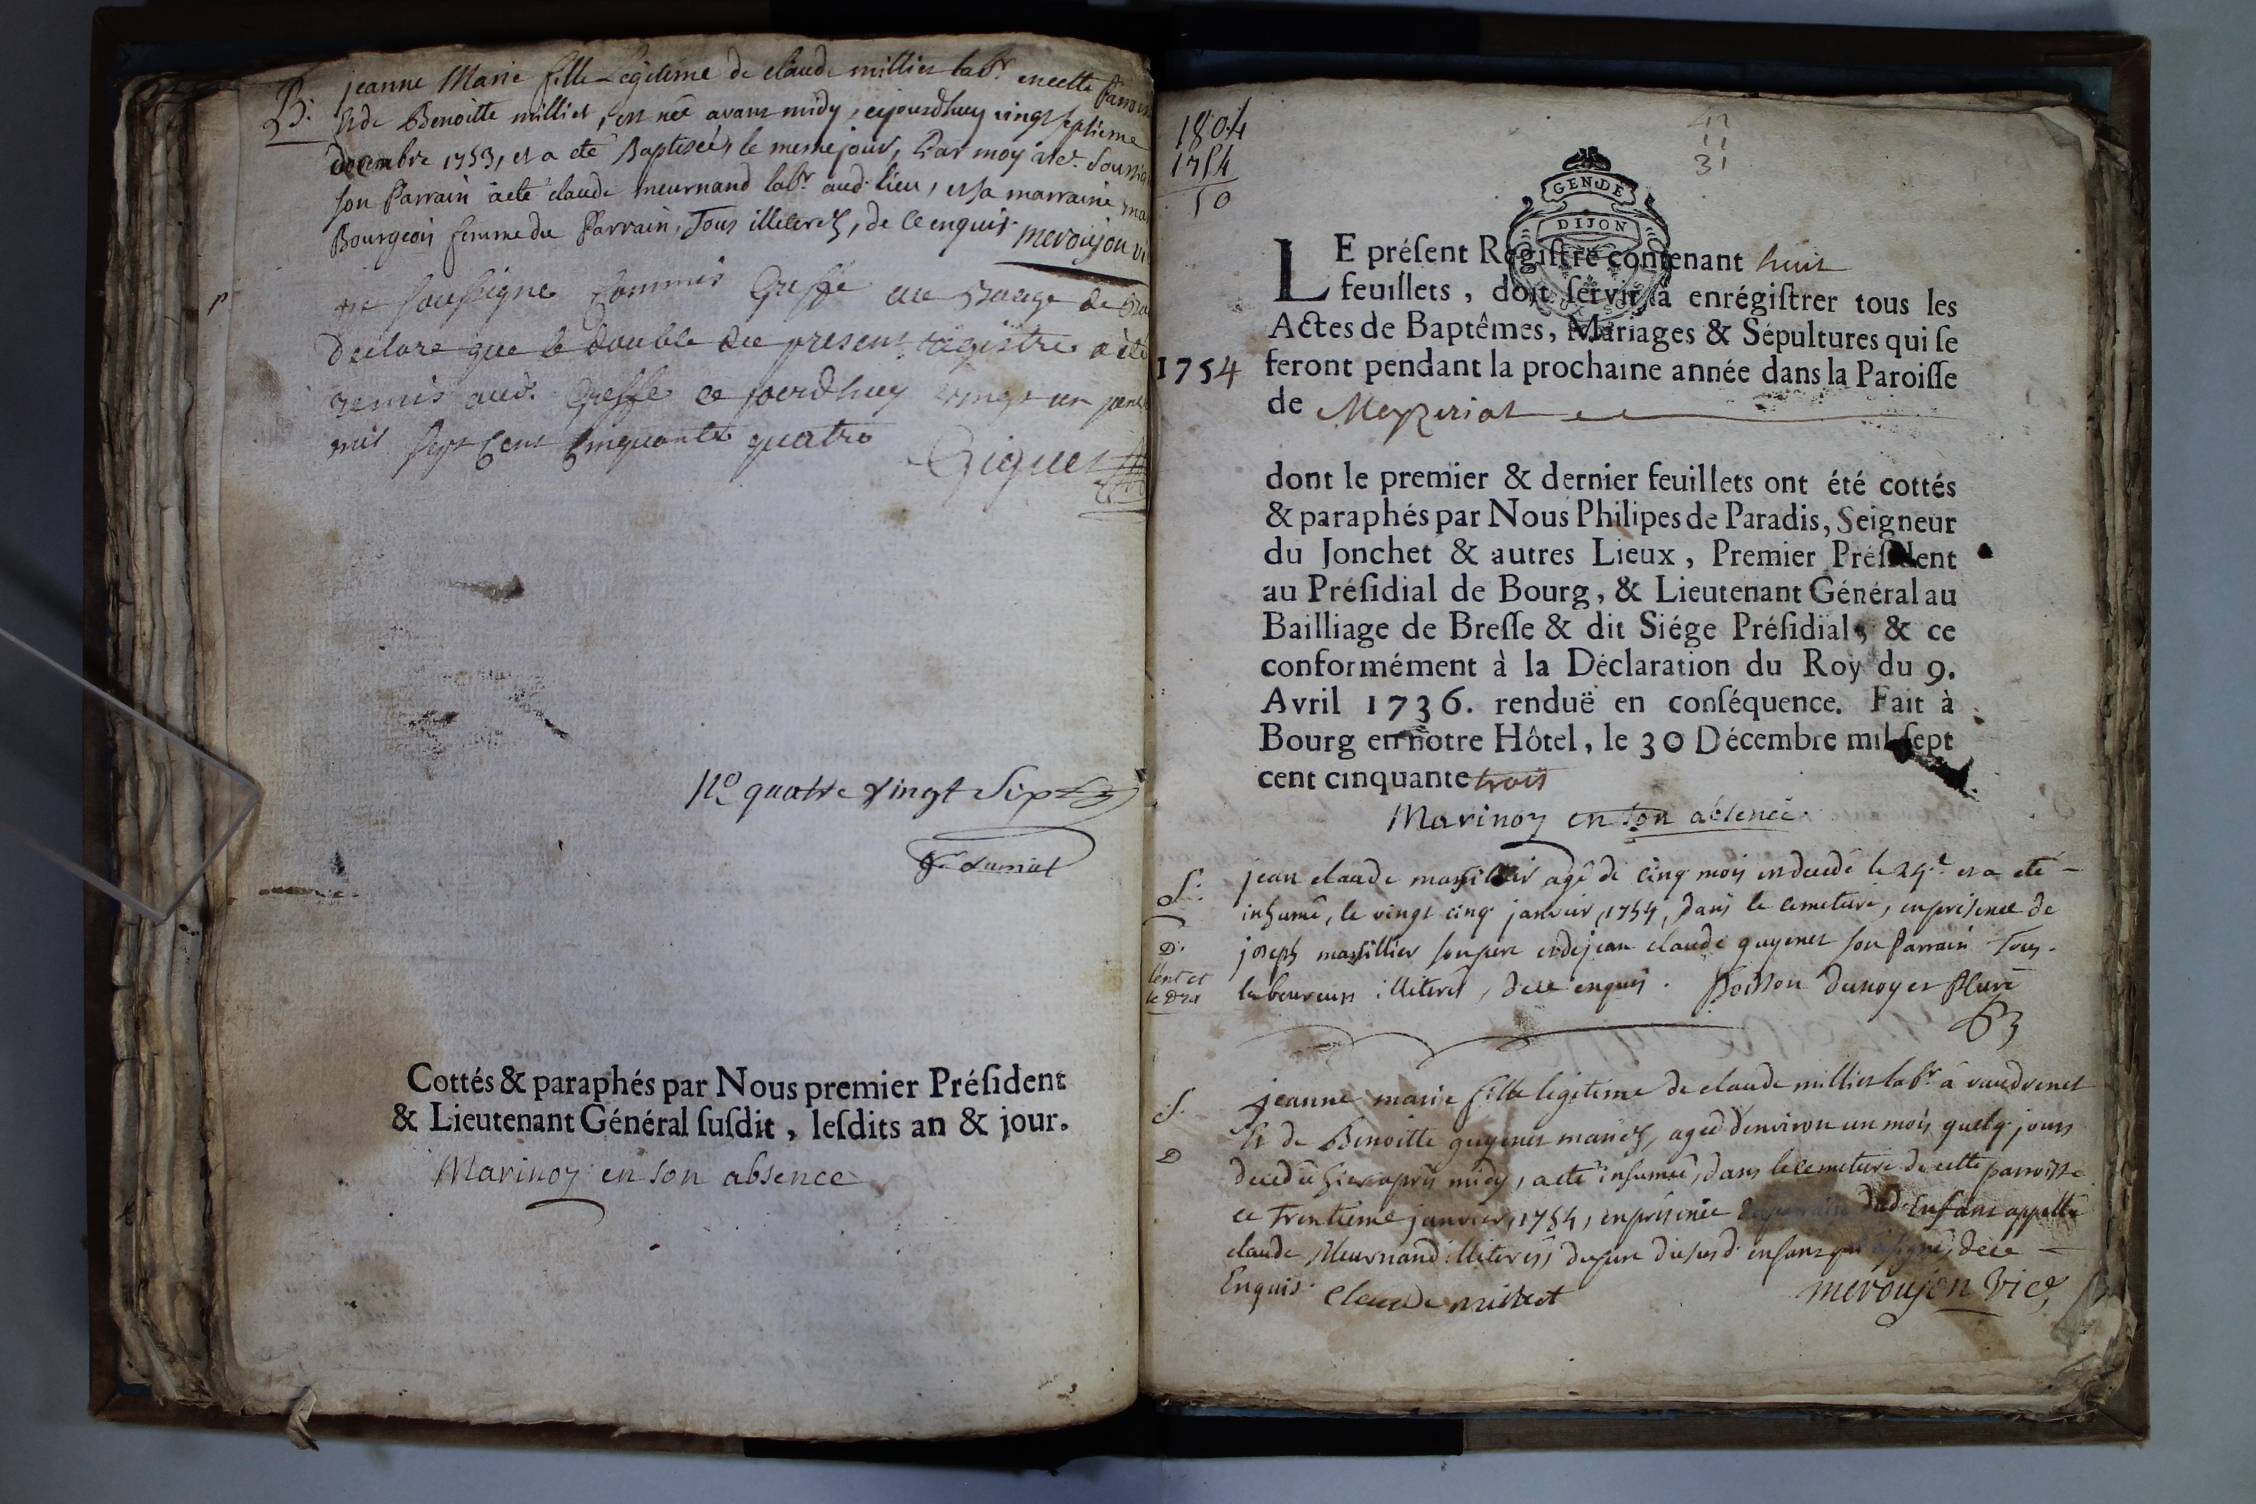 B.
jeanne Marie fille Legitime de claude millier labr. en cette
Et de Benoitte millier, est née avant midy, cejourdhuy vingt septieme
decembre 1753, et a eté Baptisée, le meme jour, Par moy
son Parrain a eté claude meurnand labr. aud. lieu, et sa marraine
Bourgeois femme du Parrain, Tous illiterez, de ce enquis. meroujon
Je soussigne Commis Greffe au
Declare que le double du present registre a été
remis aud. Greffe ce jourdhuy vingt un
mil sept Cent Cinquante quatre
N.o quatre vingt Sept
Cottés & paraphés par Nous premier Préſident
& Lieutenant Général ſuſdit, leſdits an & jour.
Marinoz en son absence
1804
1754
50
31
GEN. DE
DIJON
1754
LE préſent Regiſtre contenant huit
feuillets, doit ſervir à enrégiſtrer tous les
Actes de Baptêmes, Mariages & Sépultures qui ſe
feront pendant la prochaine année dans la Paroiſſe
de Mezeriat
dont le premier & dernier feuillets ont été cottés
& paraphés par Nous Philipes de Paradis, Seigneur
du Jonchet & autres Lieux, Premier Préſident
au Préſidial de Bourg, & Lieutenant Général au
Bailliage de Breſſe & dit Siége Préſidial, & ce
conformément à la Déclaration du Roy du 9.
Avril 1736. renduë en conſéquence. Fait à
Bourg en notre Hôtel, le 30 Décembre mil ſept
cent cinquante trois
Marinoz en son absence.
S.
D.
jean claude marillier agé de cinq mois est decedé le 24e. et a eté
inhumé, le vingt cinq janvier, 1754, dans le cemetiere, en presence de
joseph marillier son pere et de jean claude guyenet son Parrain Tous
laboureurs illiterés, de ce enquis. Poisson dunoyer
S.
D
jeanne marie fille legitime de claude millier labr. à vaudrenet
Et de Benoitte guyenet mariez, agée d'environ un mois quelq. jours
decedée hier apres midy, a eté inhumée, dans le cemetiere de cette parroisse
ce Trentieme janvier, 1754, en presence dud. Enfant appellé
claude Meurnand illiteré, du pere du susd. enfant qui a signé, de ce
Enquis. Claude millet meroujon Vic.